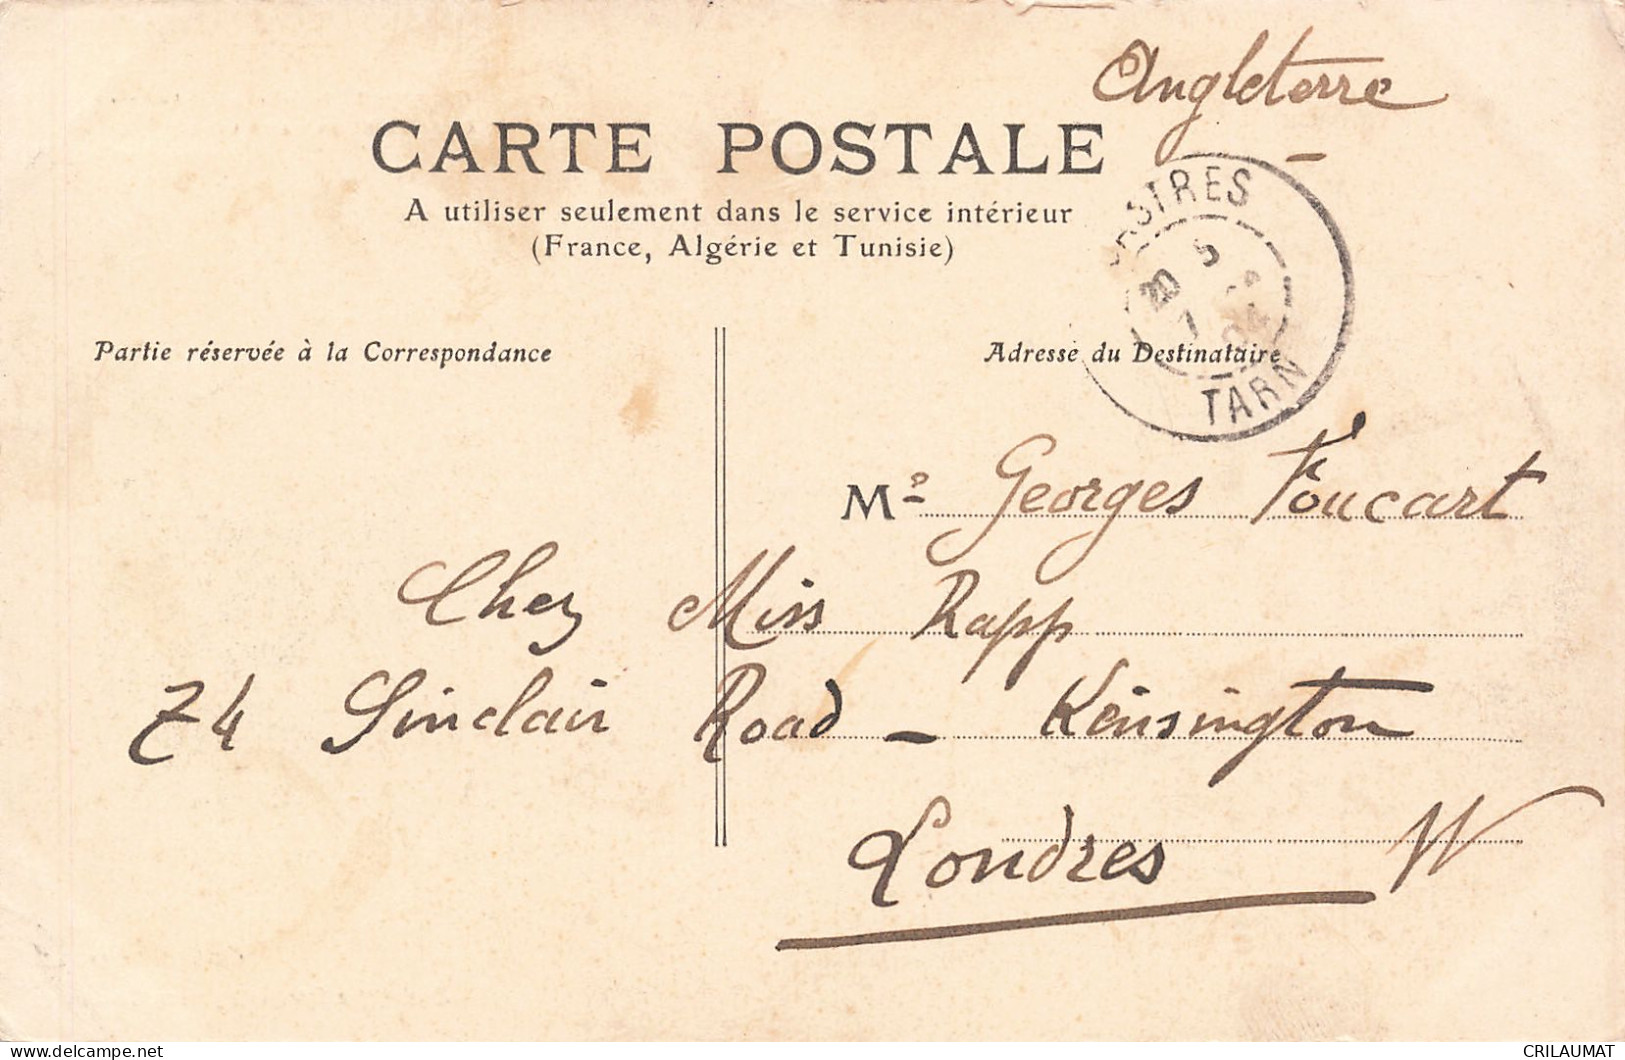 Angleterre
CARTE POSTALE
A utiliser seulement dans le service intérieur
(France, Algérie et Tunisie)
CASTRES
20 5
TARN
Partie réservée à la Correspondance
Adresse du Destinataire
Mr Georges Foucart
Chez Miss Rapp
74 Sinclair Road - Kensington
Londres W
delcampe.net
CRILAUMAT